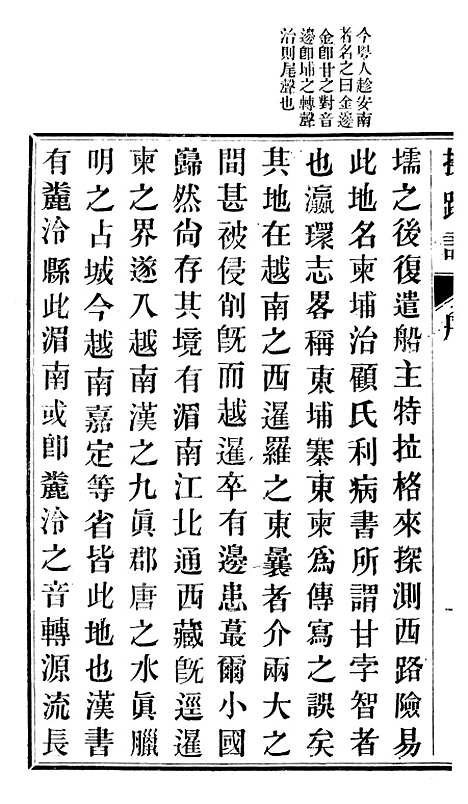 今粵人趁安南
者名之曰金邊
金即甘之對音
邊即埔之轉聲
治則尾聲也
探路記
序
壖之後復遣船主特拉格來探測西路險易
此地名柬埔治顧氏利病書所謂甘孛智者
也瀛環志畧稱東埔寨東柬爲傳寫之誤矣
其地在越南之西暹羅之東曩者介兩大之
間甚被侵削旣而越暹卒有邊患蕞爾小國
巋然尙存其境有湄南江北通西藏旣逕暹
柬之界遂入越南漢之九眞郡唐之水眞臘
明之占城今越南嘉定等省皆此地也漢書
有麊泠縣此湄南或卽麊泠之音轉源流長